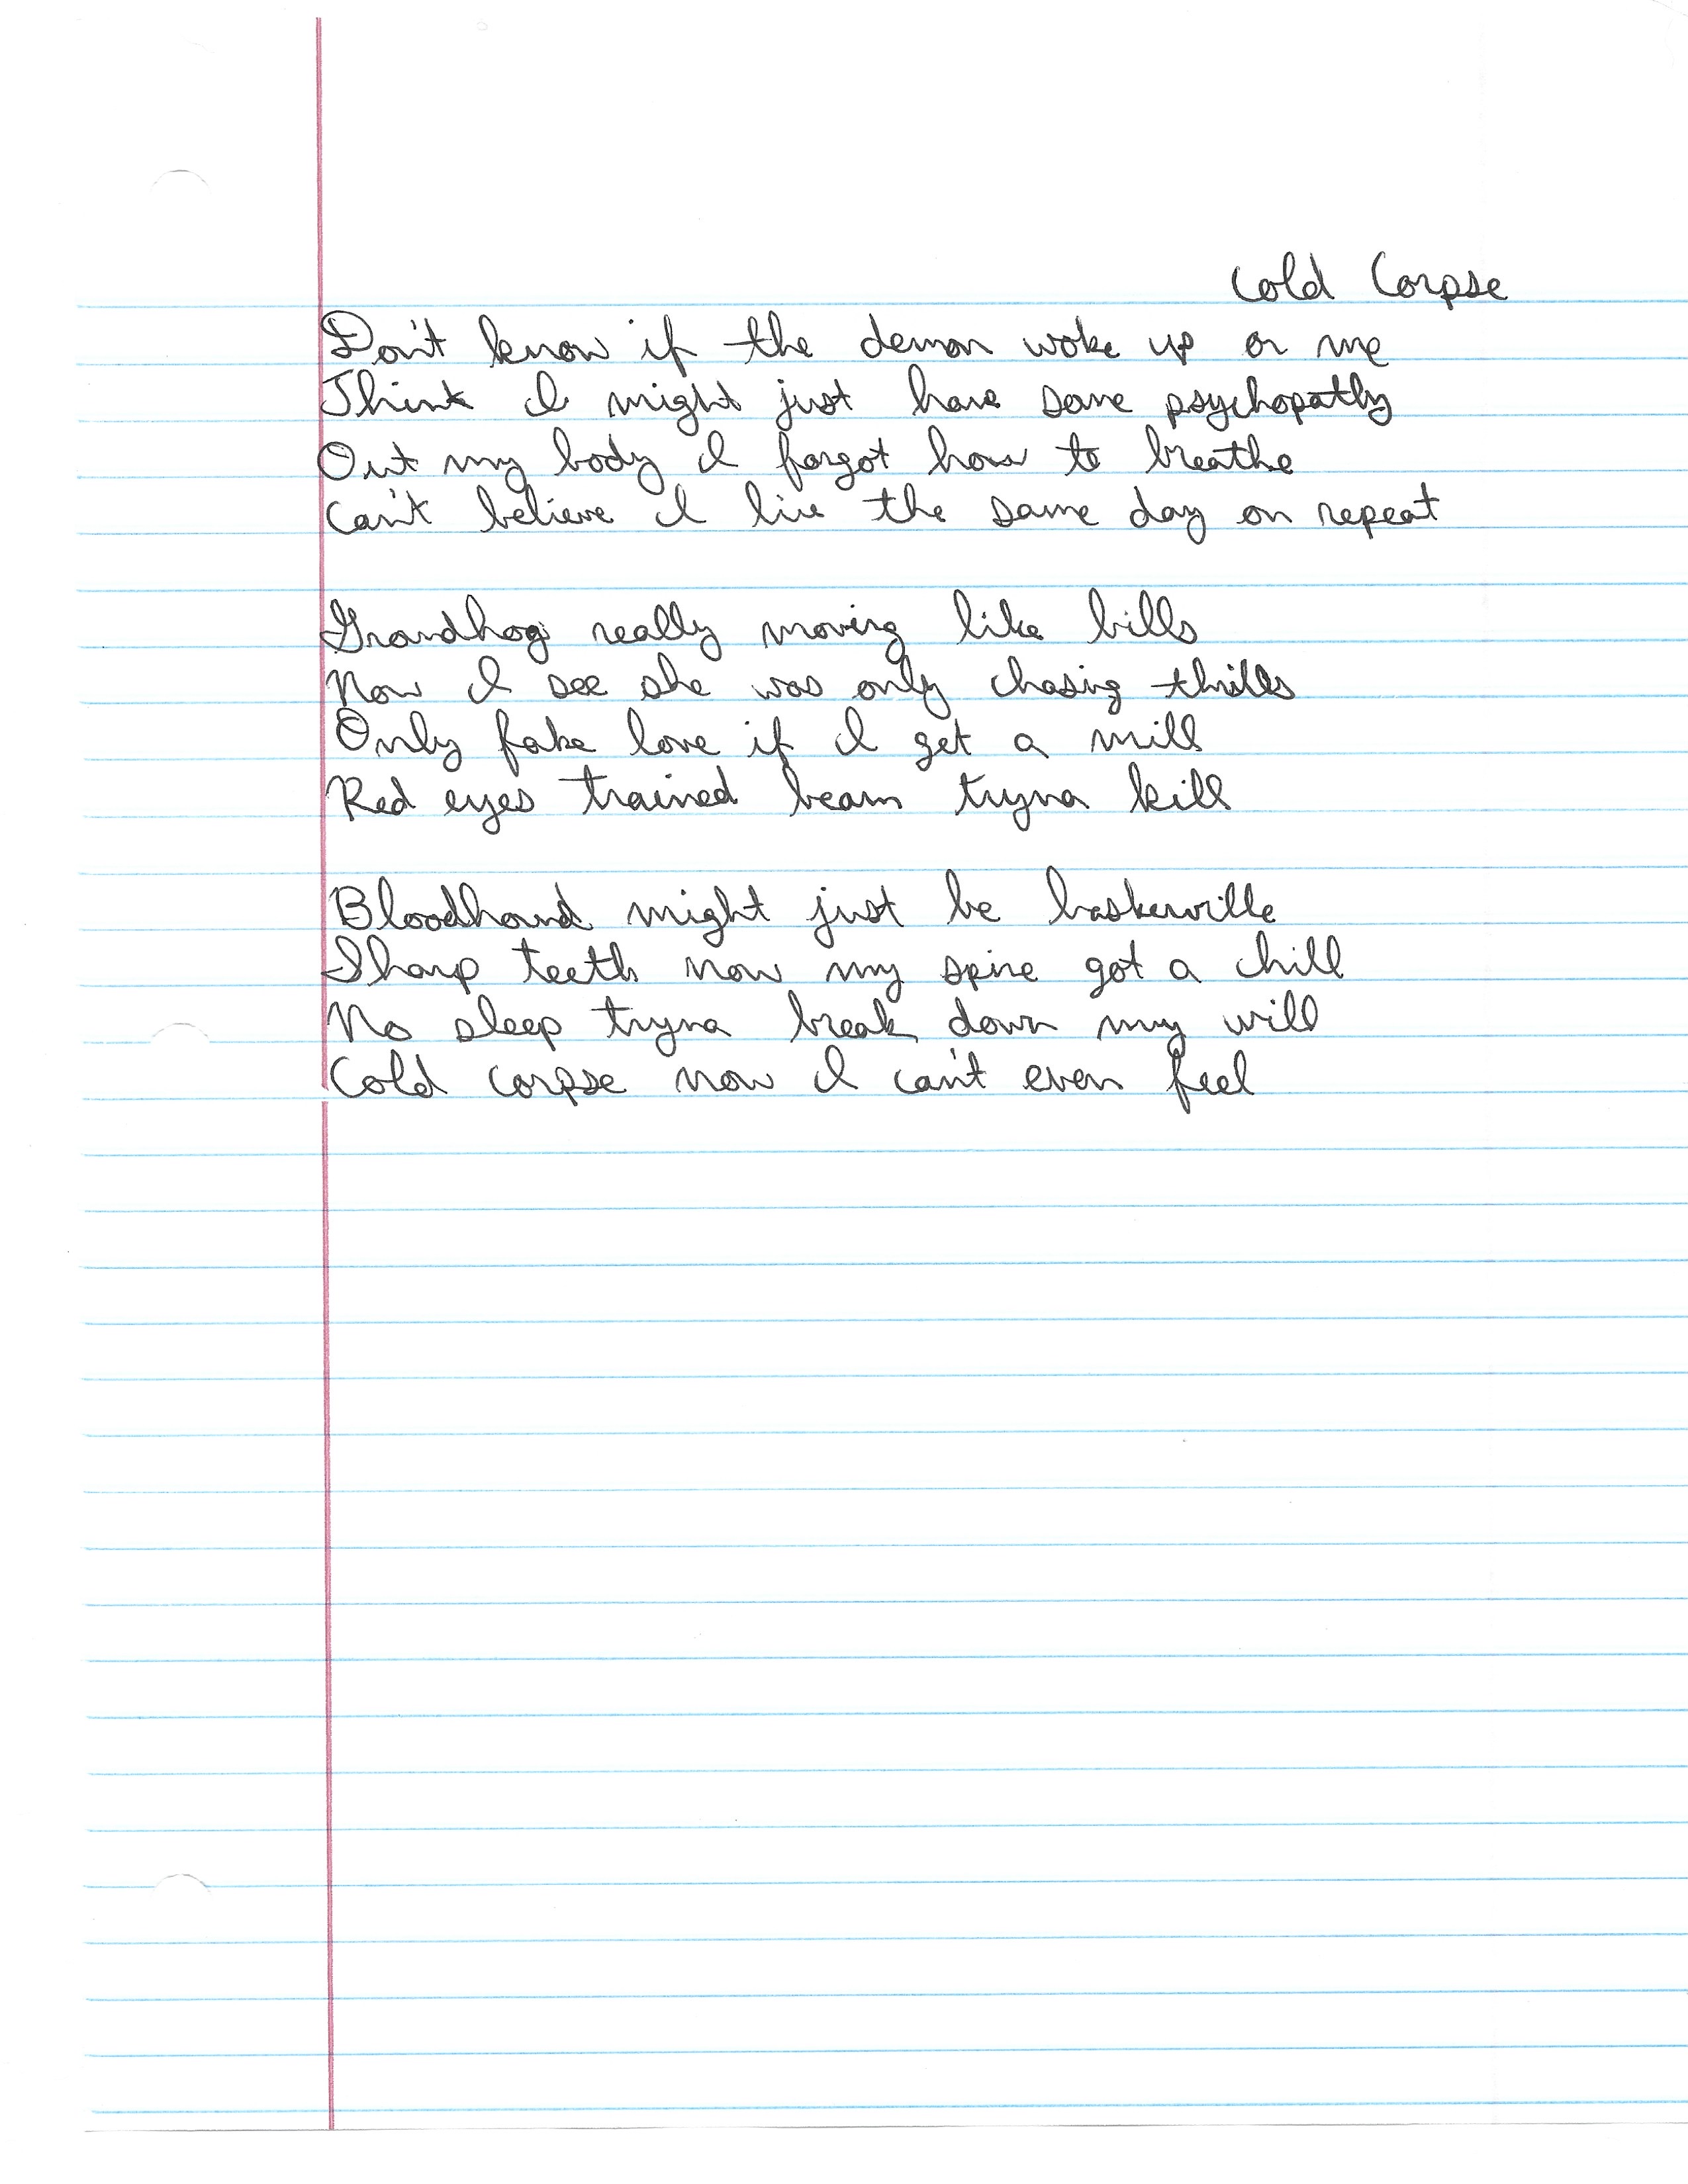 Cold Corpse
Don't know if the demon woke up or me
Think I might just have some psychopathy
Out my body I forgot how to breathe
Can't believe I live the same day on repeat
Grandhog really moving like bills
Now I see she was only chasing thrills
Only fake love if I get a mill
Red eyes trained beam tryna kill
Bloodhound might just be baskerville
Sharp teeth now my spine got a chill
No sleep tryna break down my will
Cold corpse now I can't even feel